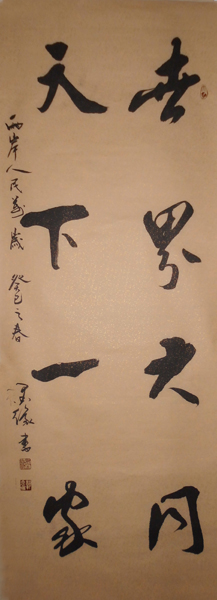 世界大同
天下一家
两岸人民万岁 癸巳之春
书